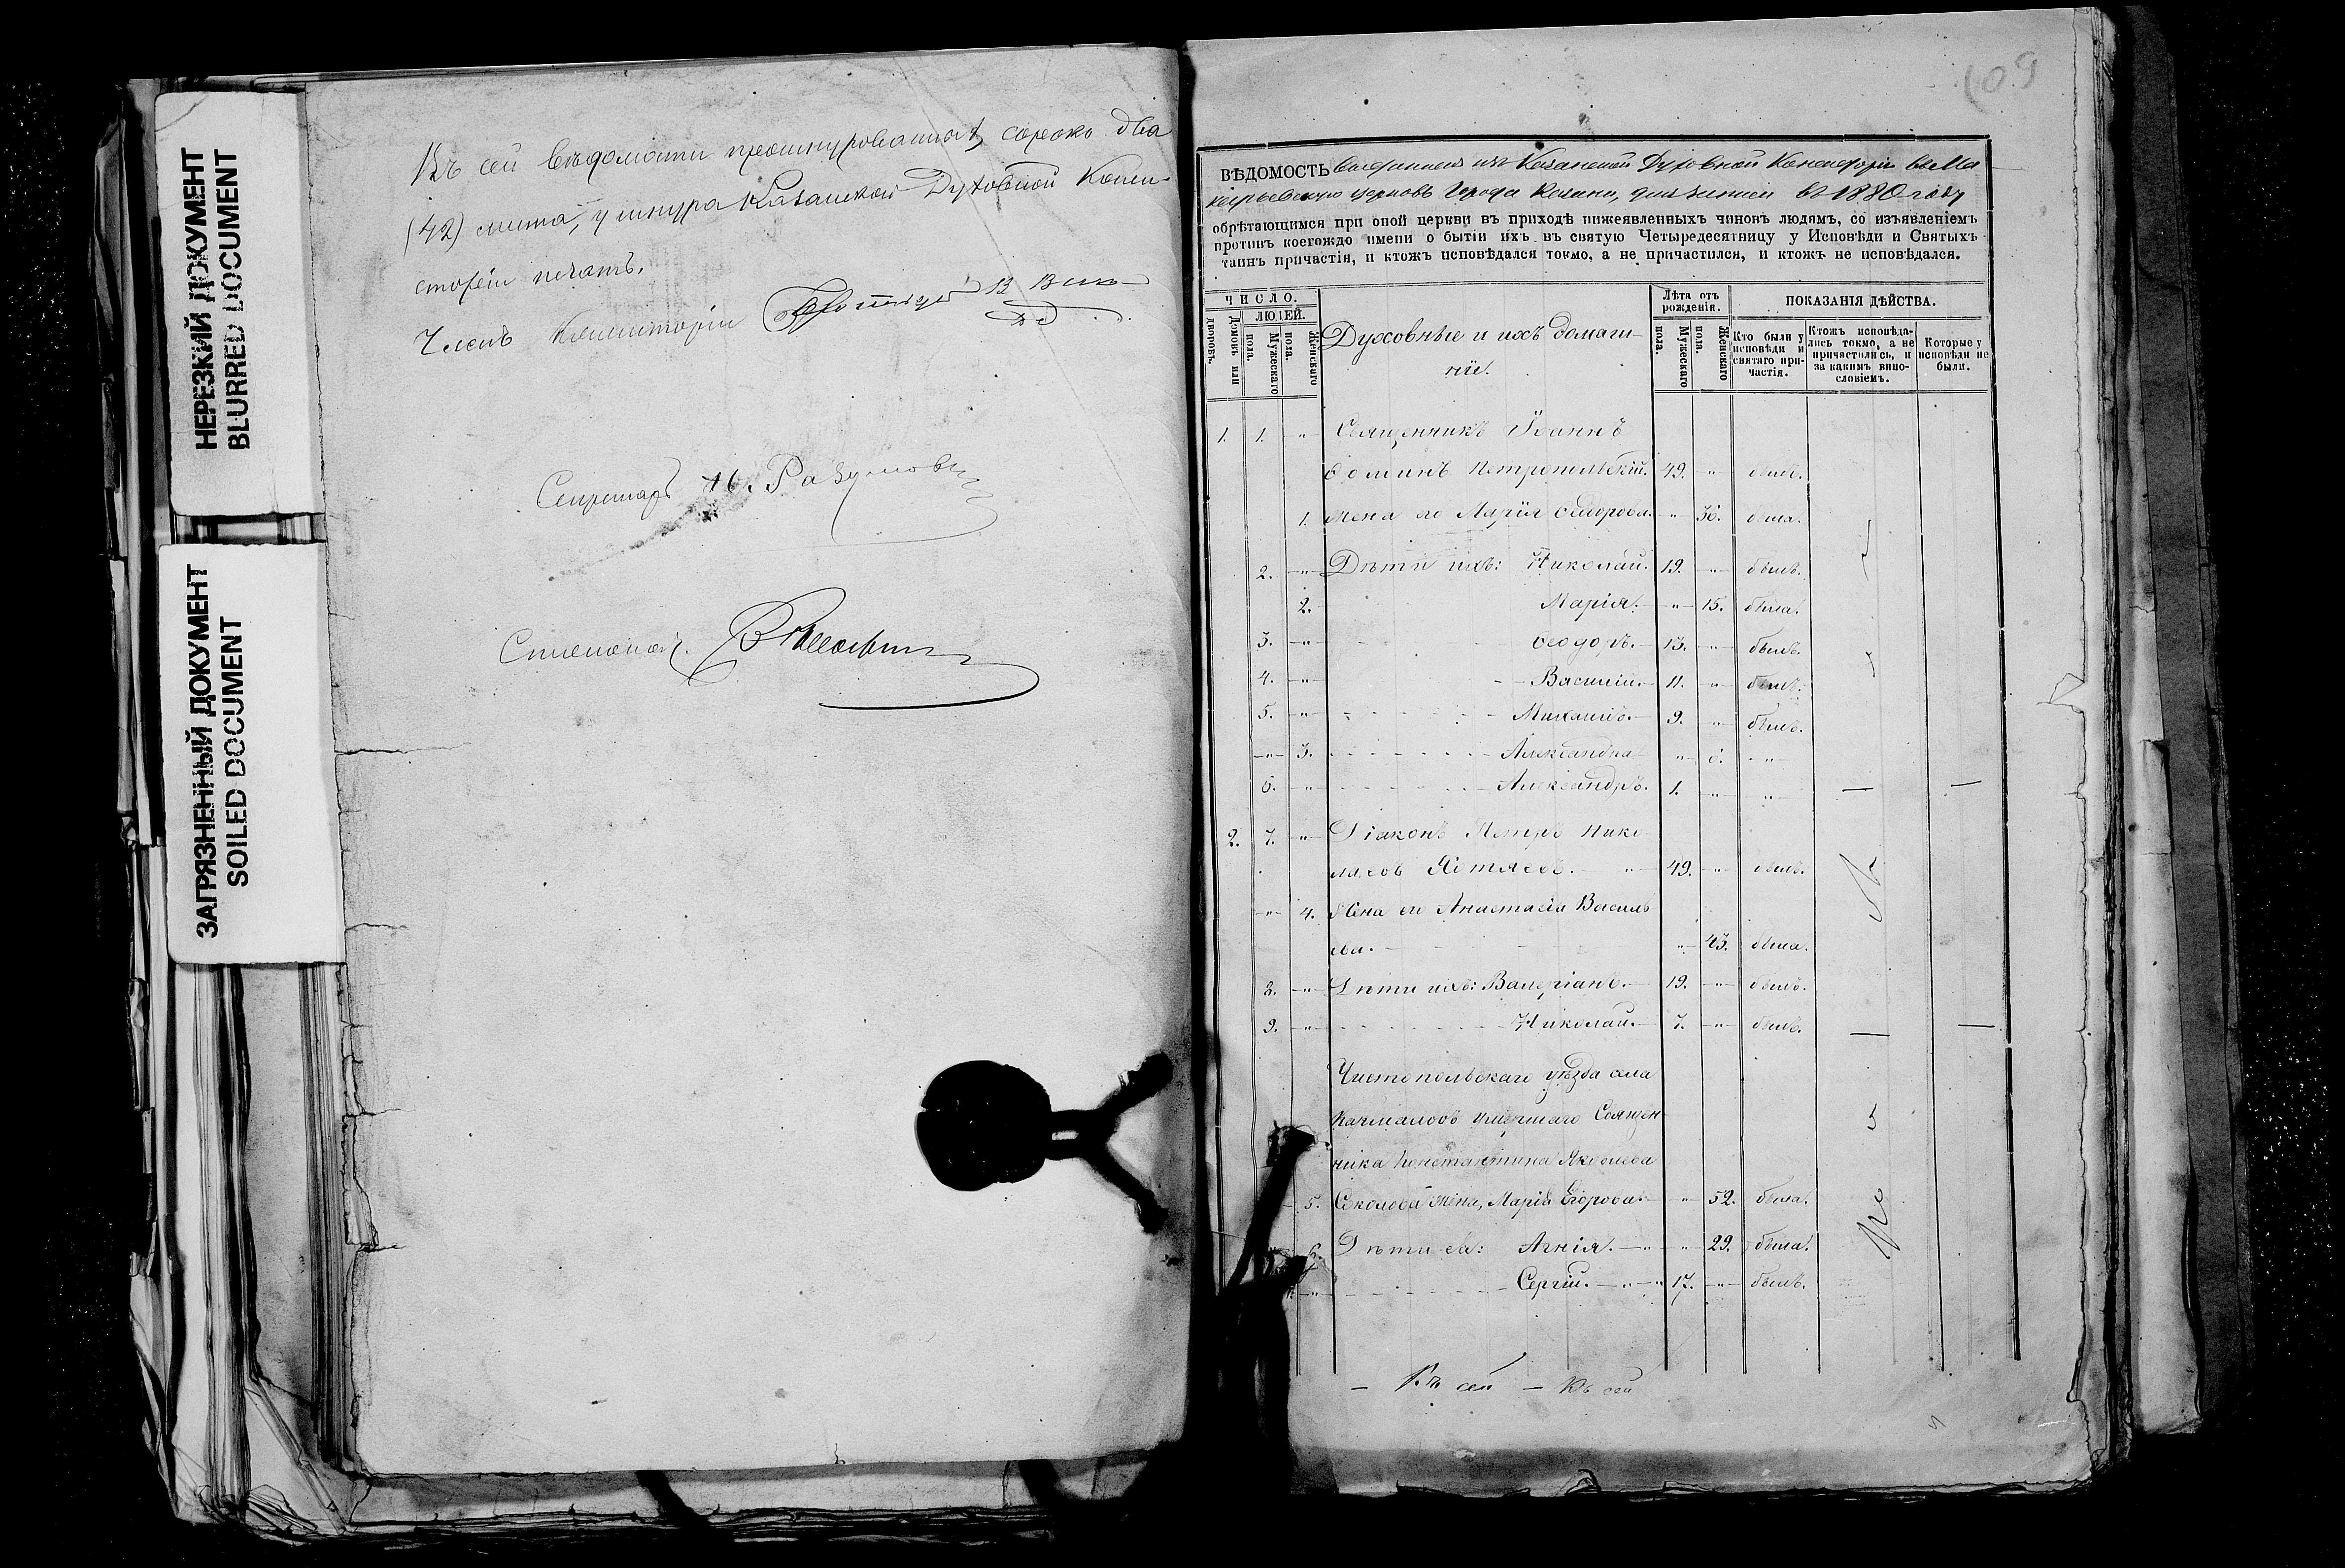 НЕРЕЗКИЙ ДОКУМЕНТ
BLURRED DOCUMENT
ЗАГРЯЗНЕННЫЙ ДОКУМЕНТ
SOILED DOCUMENT
Въ сей вѣдомости прошнурованныхъ сорокъ два
(42) листа, у шнура Казанской Духовной Конси-
сторіи печать.
Членъ Консисторіи Протоіерей В.
Секретарь Разумовъ
109
ВѢДОМОСТЬ изъ Казанской Духовной Консисторіи въ Ма
карьевскую церковь Города Казани, для записи въ 1880 году
обрѣтающимся при оной церкви въ приходѣ нижеявленныхъ чиновъ людямъ, со изъявленіемъ
противъ коегождо имени о бытіи ихъ въ святую Четыредесятницу у Исповѣди и Святыхъ
таинъ причастія, и ктожъ исповѣдался токмо, а не причастился, и ктожъ не исповѣдался.
ЧИСЛО.
ЛЮДЕЙ.
Домовъ или дворовъ.
Мужескаго пола.
Женскаго пола.
Духовные и ихъ домаш-
ніе.
Лѣта отъ рожденія.
Мужескаго пола.
Женскаго пола.
ПОКАЗАНІЯ ДѢЙСТВА.
Кто были у исповѣди и святаго причастія.
Ктожъ исповѣдались токмо, а не причастились, и за какимъ винословіемъ.
Которые у исповѣди не были.
1. 1. " Священникъ Іоаннъ
Ѳоминъ Петропольскій. 49. " былъ.
1. Жена его Марія Ѳедорова. " 36. была.
2. " Дѣти ихъ: Николай. 19. " былъ.
2. Марія. " 15. была.
3. " Ѳеодоръ. 13. " былъ.
4. " Василій. 11. " былъ.
5. " Михаилъ. 9. " былъ.
" 3. Александра " "
6. " Александръ. 1. " "
2. 7. " Діаконъ Петръ Нико
лаевъ 49. " былъ.
" 4. Жена его Анастасія Василь
ева. " 43. была.
8. " Дѣти ихъ: Валеріанъ. 19. " былъ.
9. " Николай. 7. " былъ.
Чистопольскаго уѣзда села
умершаго Священ
ника Константина Яковлева
5. Соколова жена, Марія Егорова. " 52. была.
6. Дѣти ея: Агнія. " 29. была.
" Сергій. 17. " былъ.
— Въ сей — Въ сей